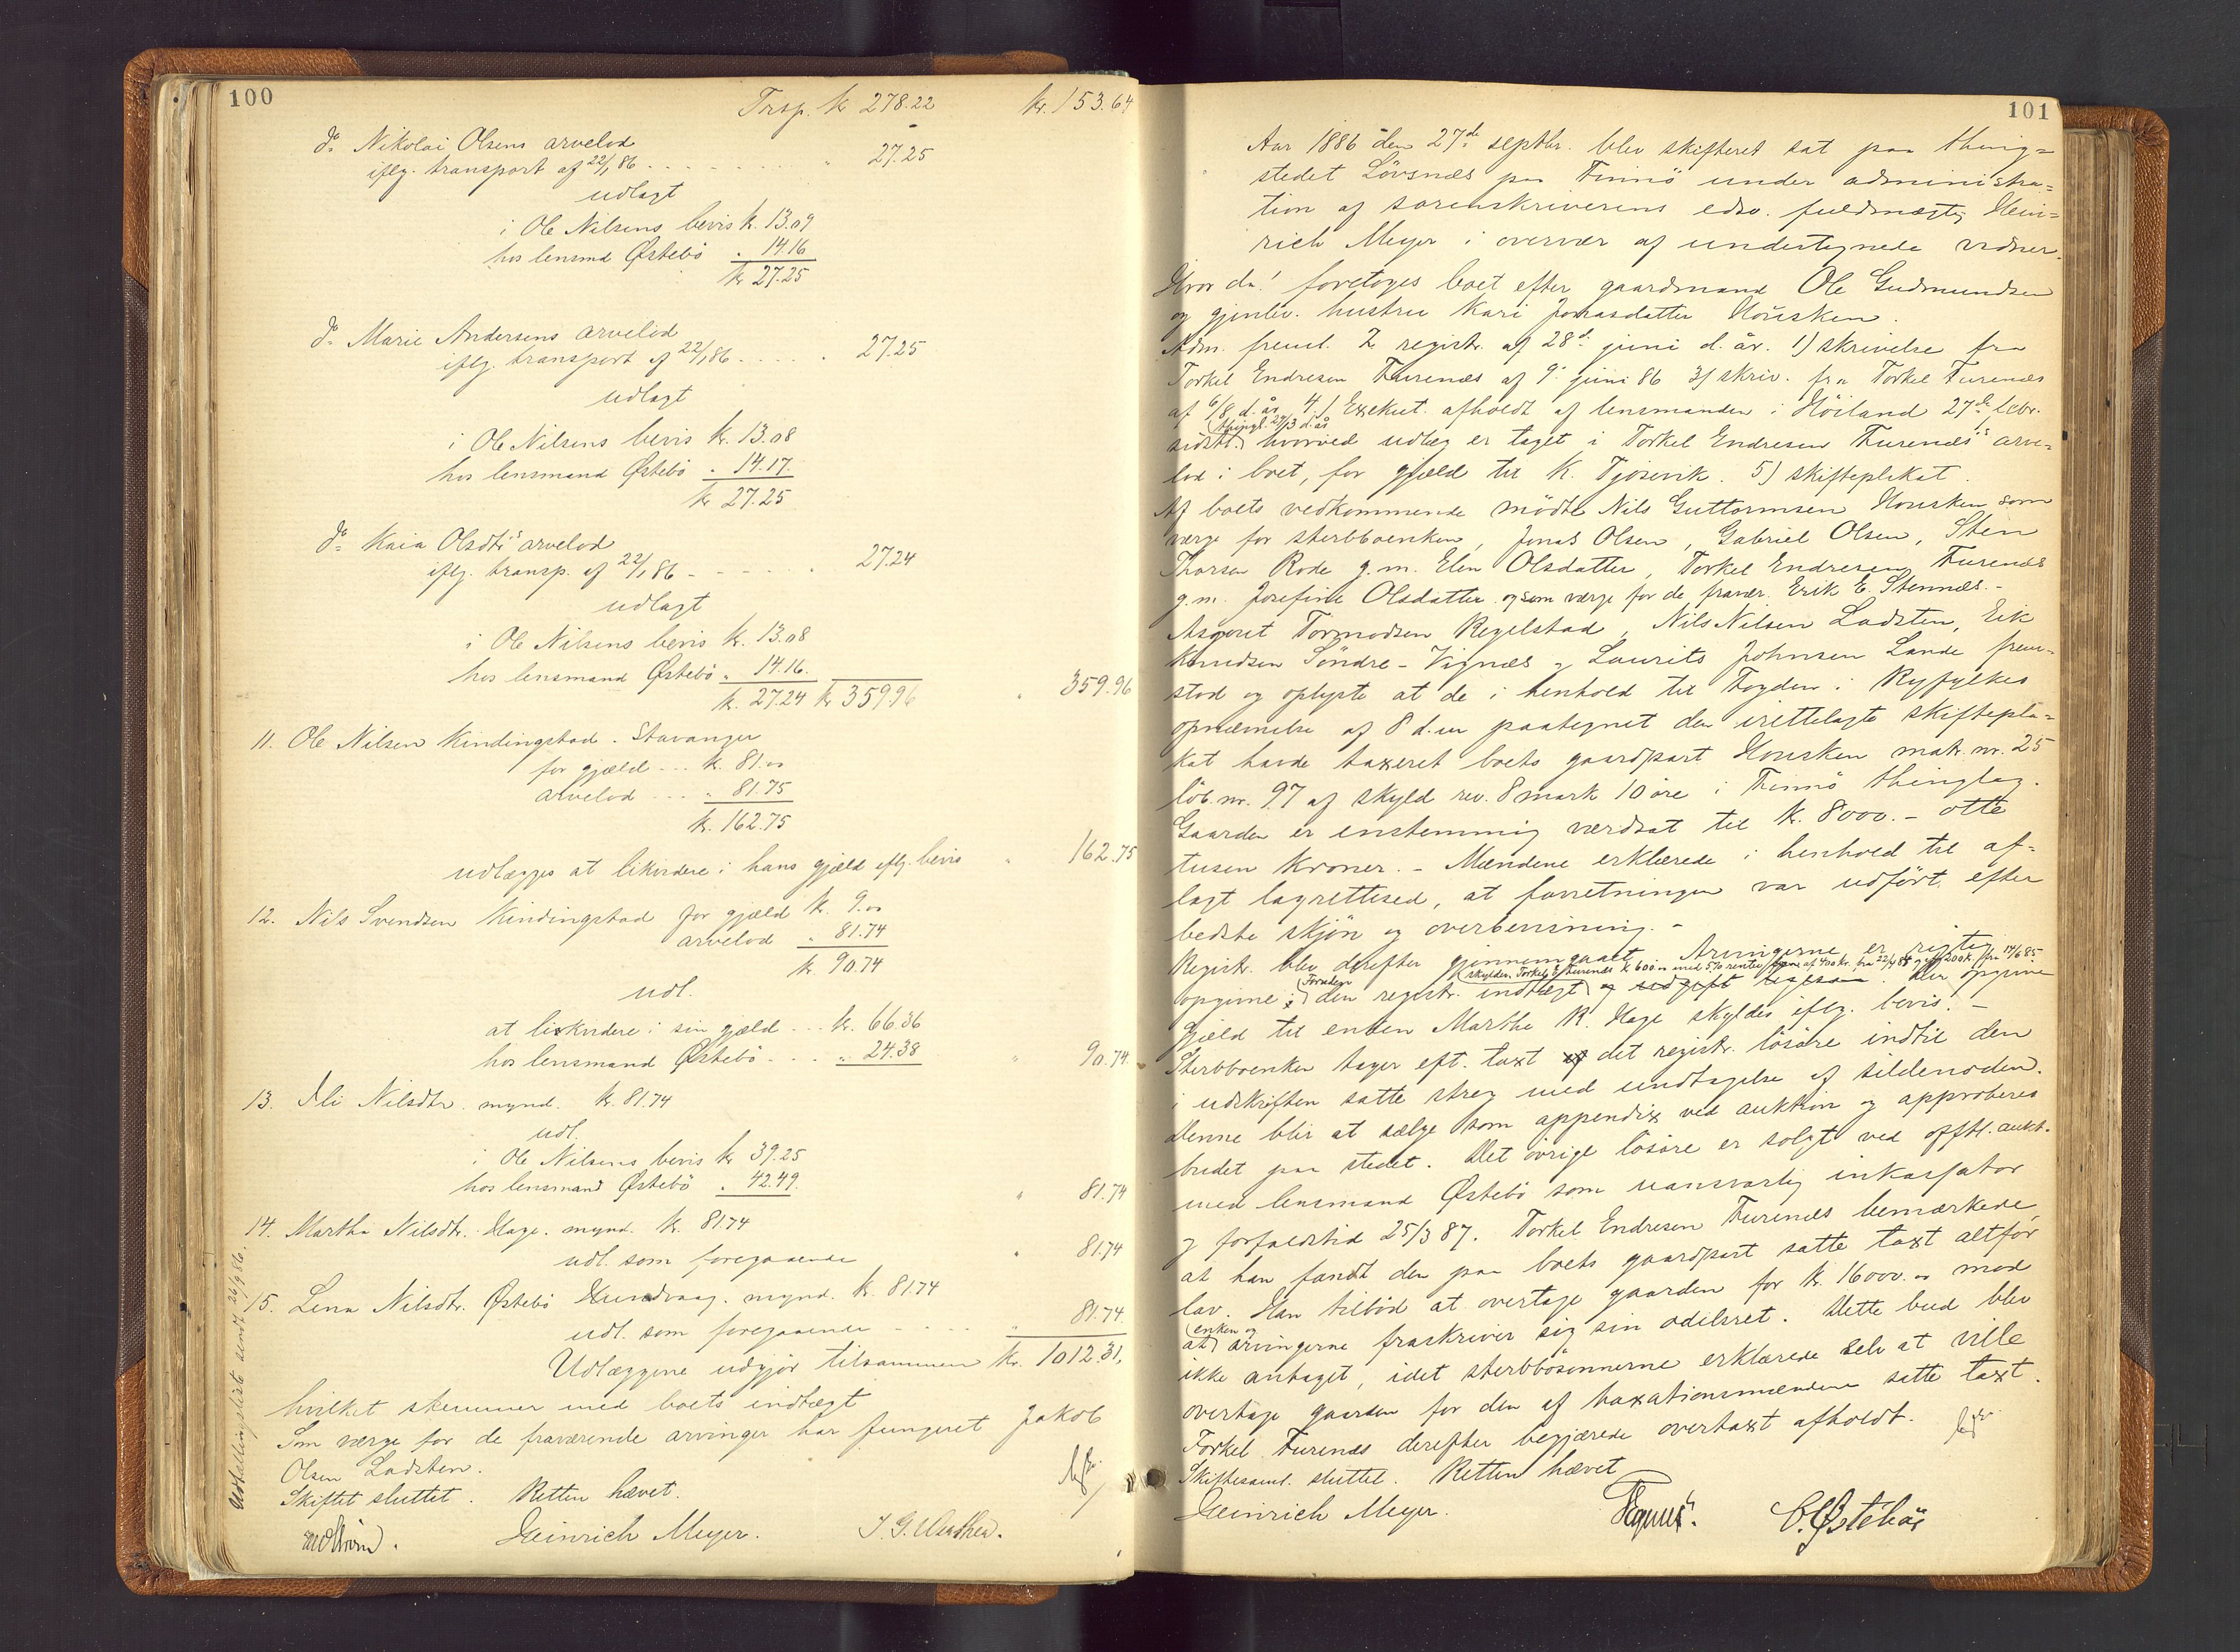 100
Trsp. kr 278.22 kr. 153.64
do Nikolai Olsens arvelod
iflg. transport af 22/1 86 - - - - " 27.25
udlagt
i Ole Nilsens bevis kr. 13.09
hos lensmd Østebö " 14.16
kr 27.25
do Marie Andersens arvelod
iflg. transport af 22/1 86 - - - - " 27.25
udlagt
i Ole Nilsens bevis kr. 13.08
hos lensmand Østebö " 14.17.
kr 27.25
do Kaia Olsdtrs arvelod
iflg. transp. af 22/1 86 - - - - " 27.24
udlagt
i Ole Nilsens bevis kr. 13.08
hos lensmand Østebö " 14.16.
kr. 27.24 kr 359.96 " 359.96
11. Ole Nilsen Kindingstad. Stavanger
for gjæld - - - kr. 81.00
arvelod - - - " 81.75
kr. 162.75
udlægges at likvidere i hans gjæld iflg. bevis " 162.75
12. Nils Svendsen Kindingstad for gjæld kr. 9.00
arvelod " 81.74
kr. 90.74
udl.
at likvidere i sin gjæld - - - kr. 66.36
hos lensmand Østebö - - - " 24.38 " 90.74.
13. Ali Nilsdtr. mynd. kr. 81.74
udl.
i Ole Nilsens bevis kr 39.25
hos lensmand Østebö " 42.49. " 81.74
14. Martha Nilsdtr. Hage. mynd. kr. 81.74
udl. som foregaaende " 81.74
15. Lena Nilsdtr. Østebö Hundvaag. mynd. kr. 81.74
udl. som foregaaende - - - - " 81.74.
Udlæggene udgjør tilsammen kr. 1012.31,
hvilket stemmer med boets indtægt
Som værge for de fraværende arvinger har fungeret Jakob
Olsen Ladsten.
Skiftet sluttet. Retten hævet.
Heinrich Meyer.
Udstellingsliste sendt 26/9 86.
101
Aar 1886 den 27de septbr. blev skifteret sat paa thing=
stedet Lövsnæs paa Finnö under administra=
tion af sorenskriverens edsv. fuldmægtig Hein=
rich Meyer i overvær af undertegnede vidner.
Hvor da! foretoges boet efter gaardmand Ole Gudmundsen
og gjenlev. hustru Kari Jonasdatter Housken.
Adm. freml. 2 registr. af 28de juni d. år. 1) skrivelse fra
Torkel Endresen Furenæs af 9. juni 86 3) skriv. fra Torkel Furenæs
af 6/8 d. år 4) Exekut. afholdt af lensmanden i Höiland 27de febr.
sidstl. (thingl. 29/3 d. år) hvorved udlæg er taget i Torkel Endresen Furenæs's arve=
lod i boet, for gjæld til K. Tjösevik. 5) skifteplakat.
Af boets vedkommende mödte Nils Guttormsen Housken som
værge for sterbboenken, Jonas Olsen, Gabriel Olsen, Sten
Thorsen Rode g. m. Elen Olsdatter, Torkel Endresen Furenæs
g. m. Josefine Olsdatter og som værge for de fravær. Erik E. Stennæs. -
Asgout Tormodsen Regelstad, Nils Nilsen Ladsten, Eik
Knudsen Söndre-Vignæs og Laurits Johnsen Lande frem=
stod og oplyste at de i henhold til Fogden i Ryfylkes
opnævnelse af 8 d. m paategnet den irettelagte skiftepla=
kat havde taxeret boets gaardpart Housken matr. nr. 25
löb. nr. 97 af skyld rev. 8 mark 10 öre i Finnö thinglag.
Gaarden er enstemmig værdsat til kr. 8000. - otte
tusen kroner. - Mændene erklærede i henhold til af=
lagt lagrettesed, at forretningen var udfört efter
bedste skjön og overbevisning. -
Registr. blev derefter gjennemgaaet. Arvingerne er rigtig
(skylder Torkel E. Furenæs kr 600.00 med 5% rente af 400 kr. fra 22/4 84 og af 200 k. fra 14/6 85
opgivne; (Foruden) den registr. indtægt og udgift ligesaa. Den opgivne
Gjæld til enken Marthe R. Hage skyldes iflg. bevis. -
Sterbboenken tager eft. taxt af det registr. lösöre indtil den
i udskriften satte streg med undtagelse af sildenoden.
Denne blir at sælge som appendix ved auktion og approberes
budet paa stedet. Det övrige lösöre er solgt ved offtl. aukt.
med lensmand Østebö som uansvarlig inkassator
og forfaldstid 25/3 87. Torkel Endresen Furenæs bemærkede,
at han fandt den paa boets gaardpart satte taxt altfor
lav. Han tilböd at overtage gaarden for kr. 16000.00 mod
at (enken og) arvingerne fraskriver sig sin odelsret. Dette bud blev
ikke antaget, idet sterbbosönnerne erklærede selv at ville
overtage gaarden for den af taxationsmændene satte taxt.
Torkel Furenæs derefter begjærede overtaxt afholdt.
Skiftesaml. sluttet. Retten hævet
Heinrich Meyer. C. Østebö